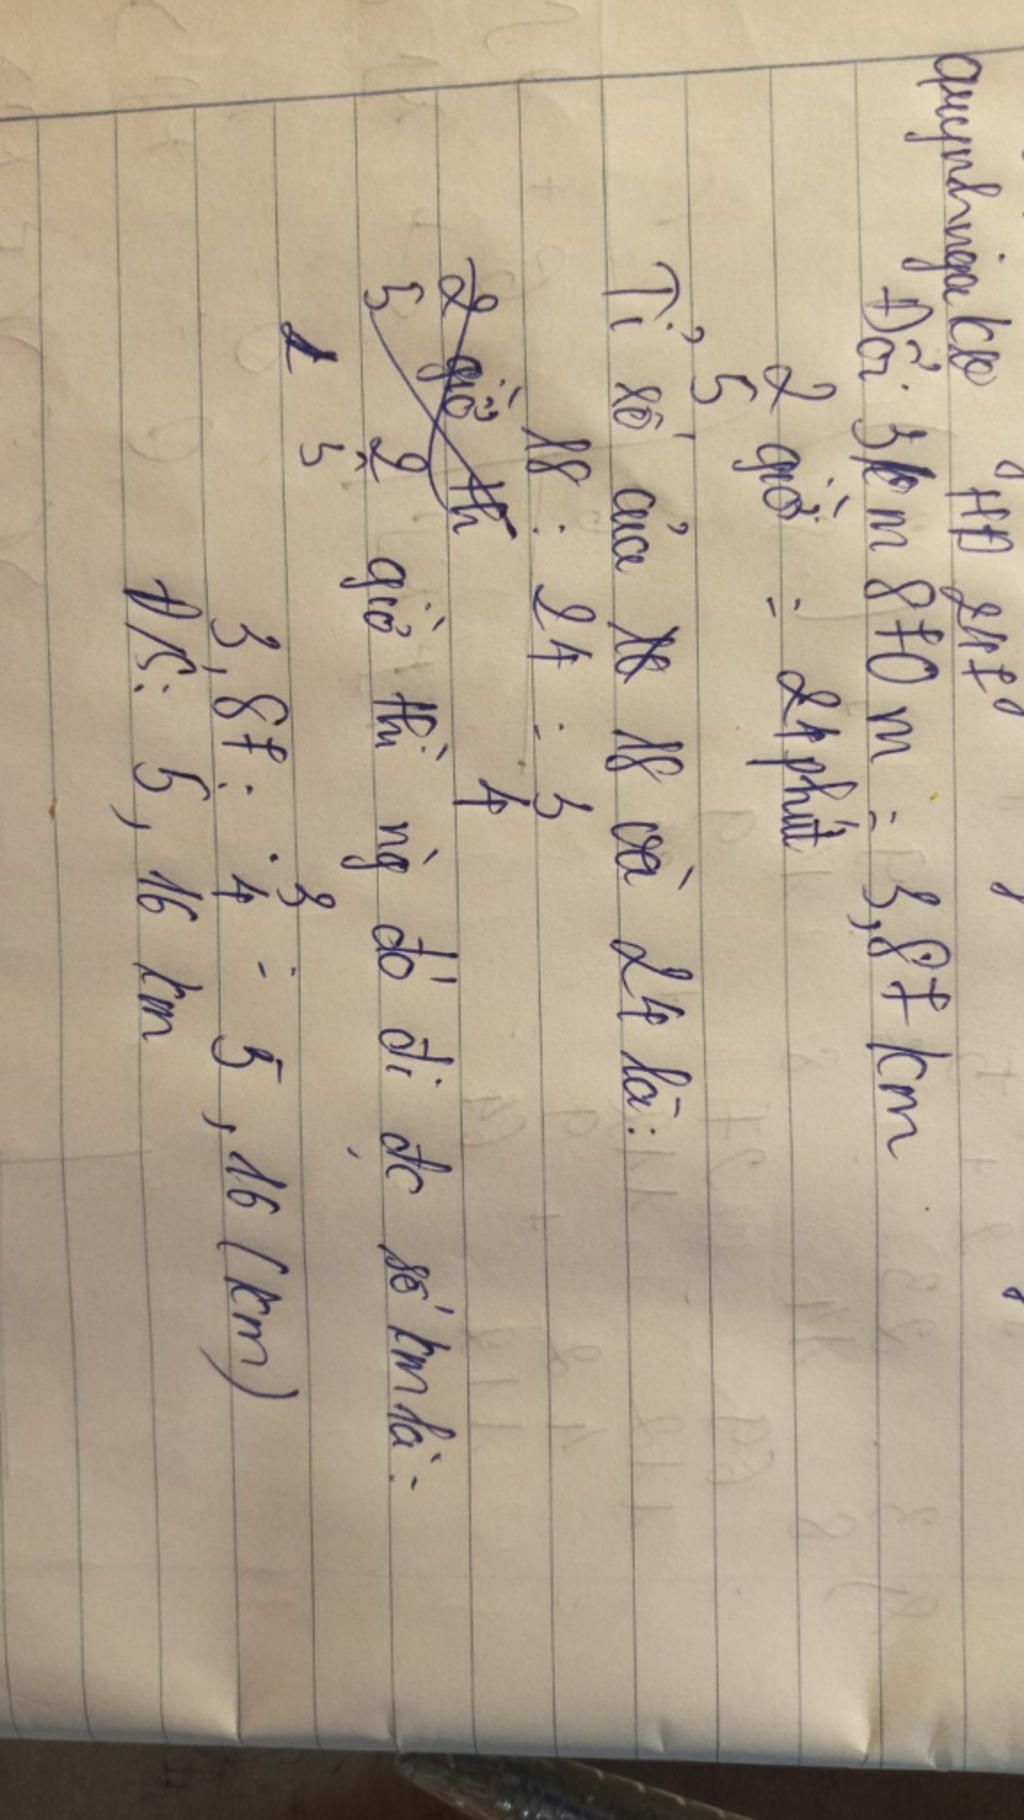 quynhnga HD 247
Đổi: 3km 870 m = 3,87 km
2/5 giờ = 24 phút
Tỉ số của 18 và 24 là:
18 : 24 = 3/4
2/5 giờ thì
2/5 giờ thì ng đó đi đc số km là:
3,87 : 3/4 = 5,16 (km)
Đ/S: 5,16 km